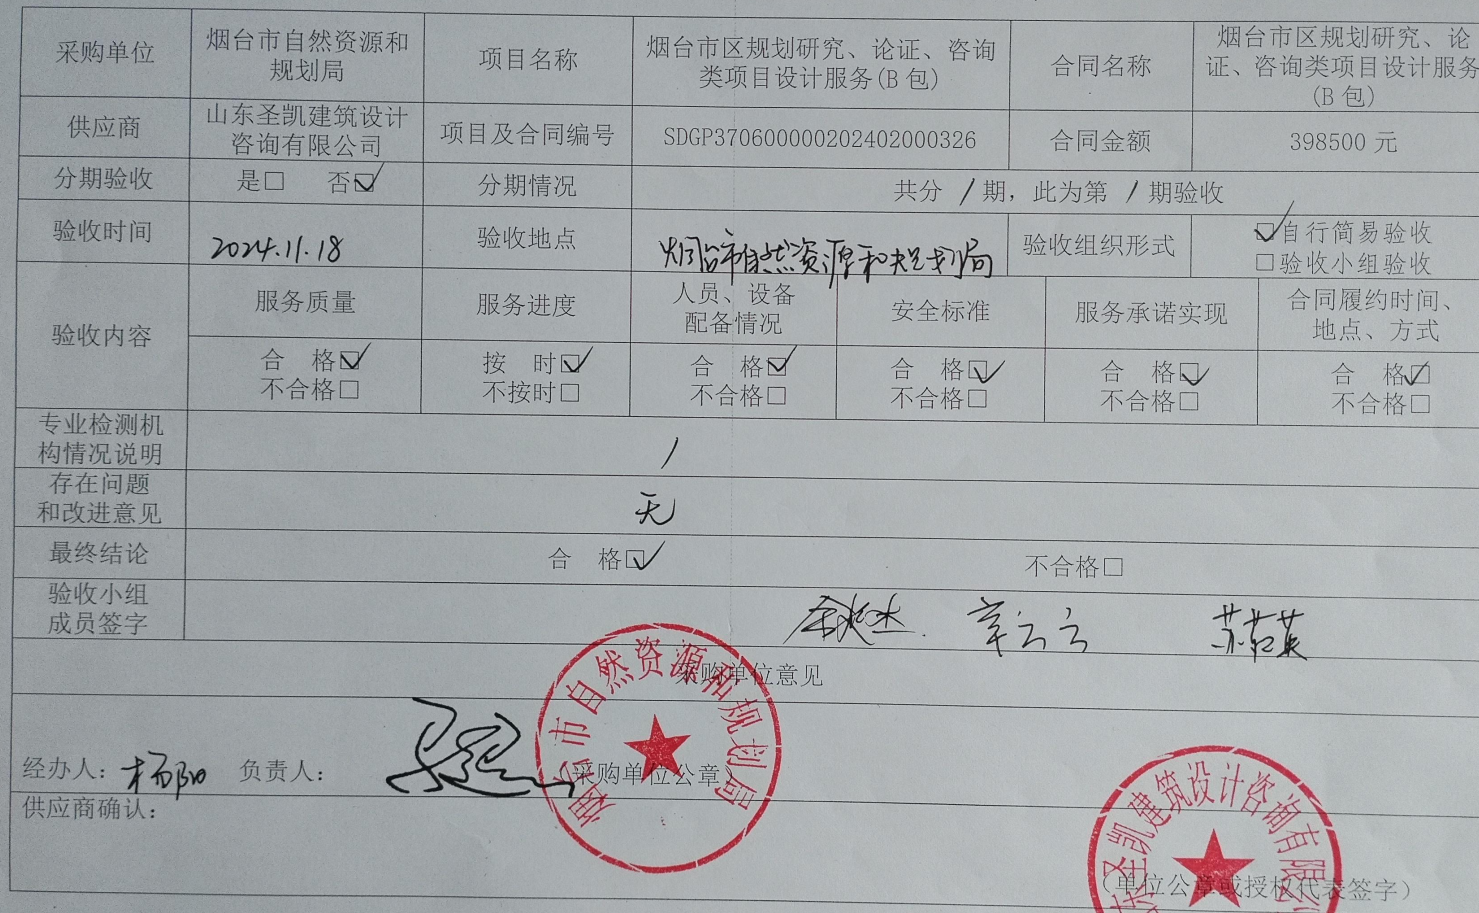 采购单位 烟台市自然资源和规划局 项目名称 烟台市区规划研究、论证、咨询类项目设计服务(B包) 合同名称 烟台市区规划研究、论证、咨询类项目设计服务(B包)
供应商 山东圣凯建筑设计咨询有限公司 项目及合同编号 SDGP370600000202402000326 合同金额 398500元
分期验收 是□ 否☑ 分期情况 共分 / 期，此为第 / 期验收
验收时间 2024.11.18 验收地点 烟台市自然资源和规划局 验收组织形式 ☑自行简易验收
□验收小组验收
验收内容 服务质量 服务进度 人员、设备配备情况 安全标准 服务承诺实现 合同履约时间、地点、方式
合 格☑ 按 时☑ 合 格☑ 合 格☑ 合 格☑ 合 格☑
不合格□ 不按时□ 不合格□ 不合格□ 不合格□ 不合格□
专业检测机构情况说明 /
存在问题和改进意见 无
最终结论 合 格☑ 不合格□
验收小组成员签字
采购单位意见
经办人：杨阳 负责人： （采购单位公章）
烟台市自然资源和规划局
供应商确认：
圣凯建筑设计咨询有限
（单位公章或授权代表签字）